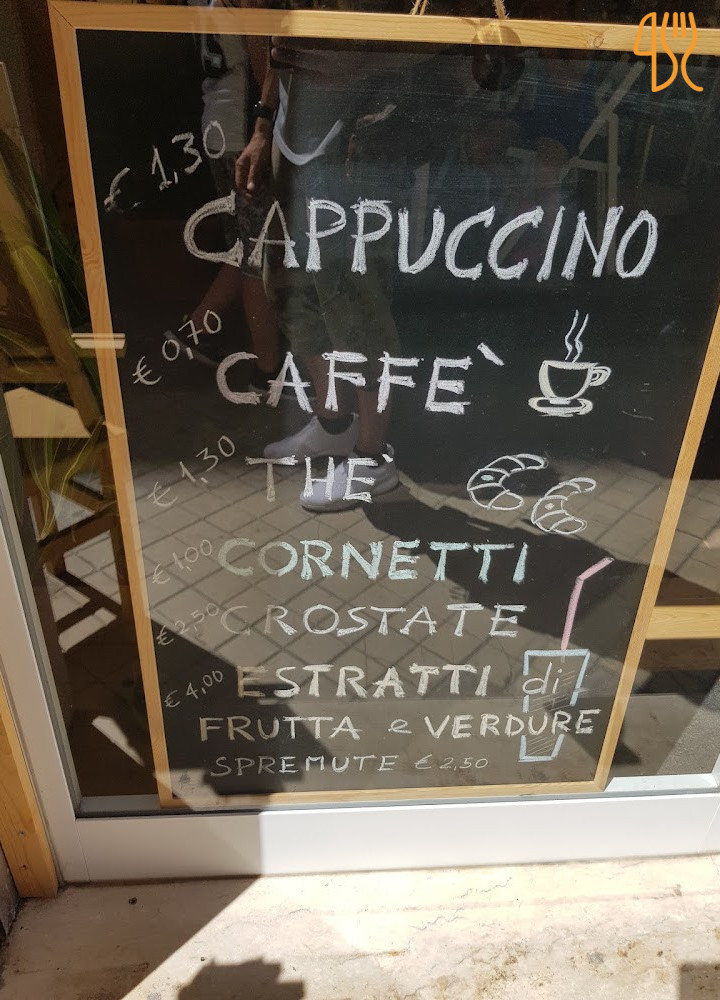 € 1,30
CAPPUCCINO
€ 0,70
CAFFE`
€ 1,30 THE`
€ 1,00 CORNETTI
€ 2,50 CROSTATE
€ 4,00 ESTRATTI di
FRUTTA e VERDURE
SPREMUTE € 2,50